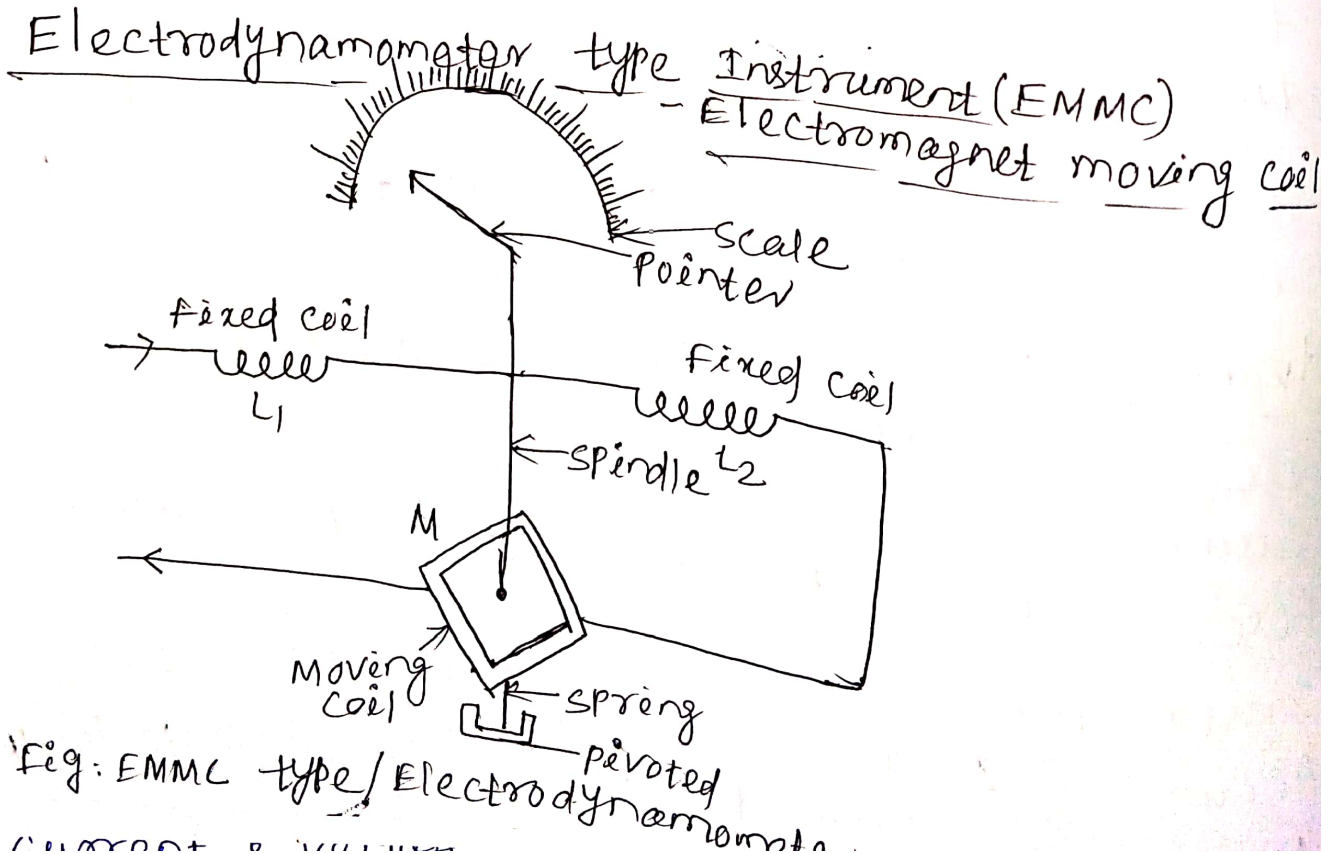 Electrodynamometer type Instrument (EMMC)
- Electromagnet moving coil
Scale
Pointer
fixed coil
L1
Fixed coil
L2
Spindle
M
Moving
coil
Spring
Pivoted
Fig: EMMC type/Electrodynamomete